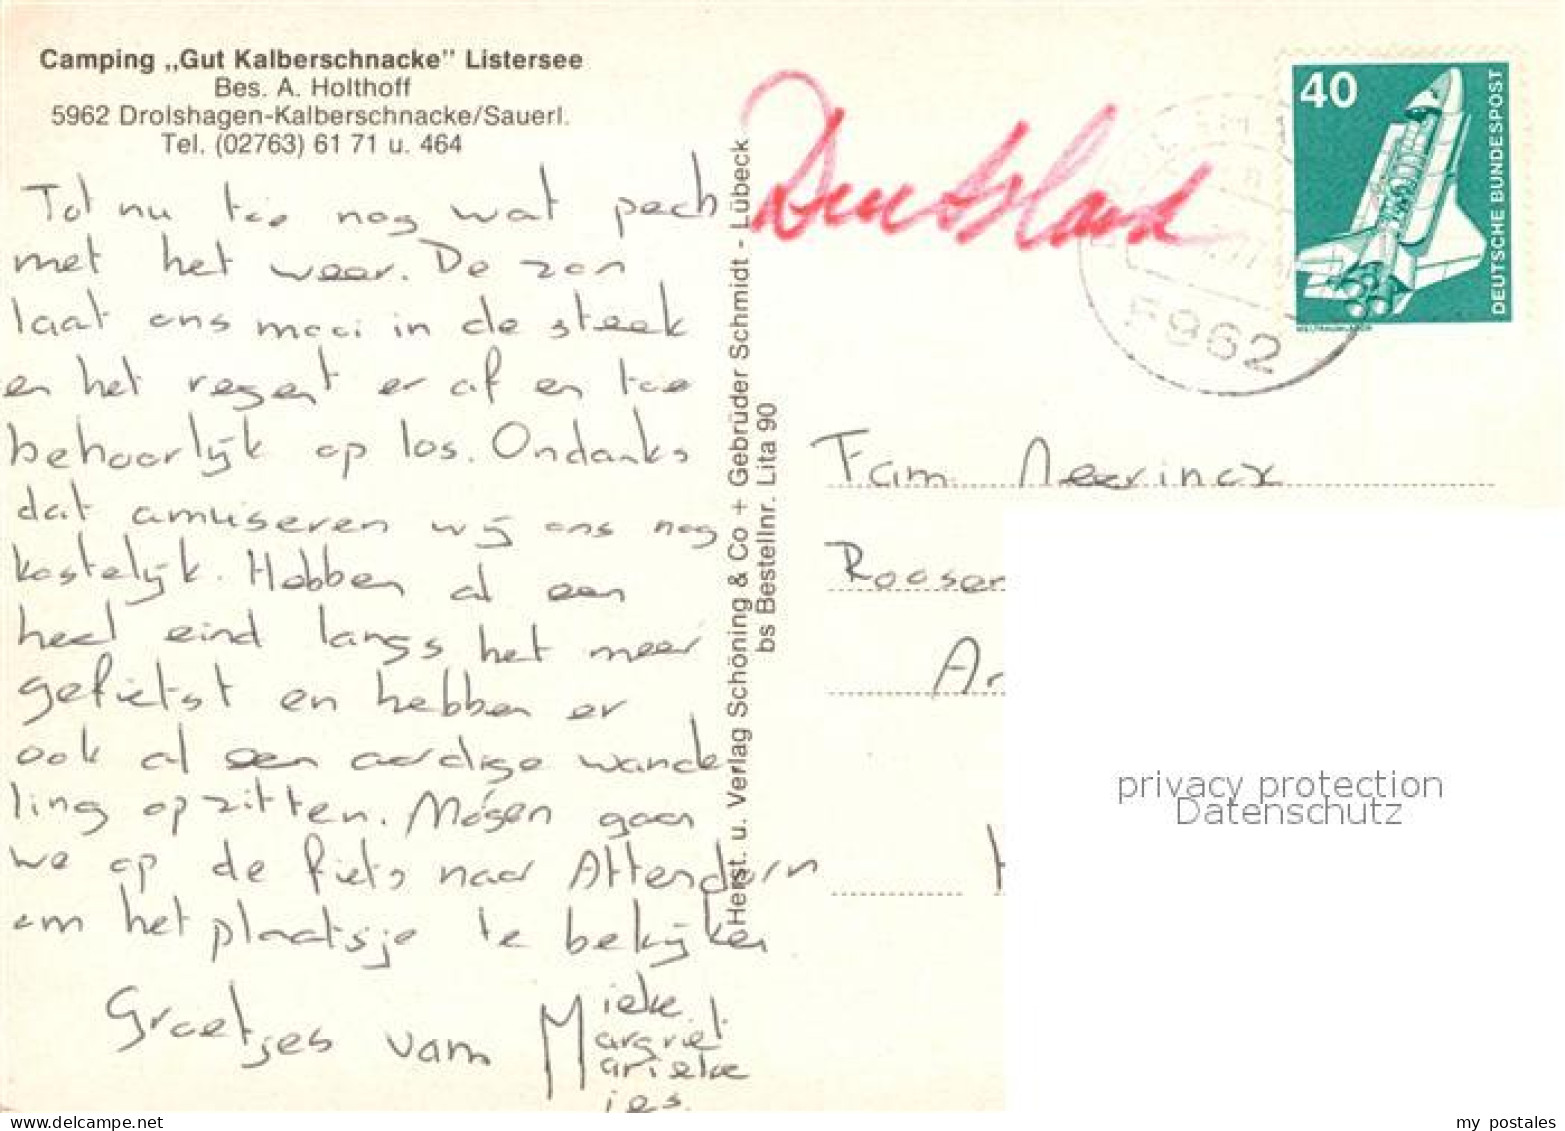 Camping „Gut Kalberschnacke” Listersee
Bes. A. Holthoff
5962 Drolshagen-Kalberschnacke/Sauerl.
Tel. (02763) 61 71 u. 464
Tot nu toe nog wat pech
met het weer. De zon
laat ons mooi in de steek
en het regent er af en toe
behoorlijk op los. Ondanks
dat amuseren wij ons nog
kostelijk. Hebben al een
heel eind langs het meer
gefietst en hebben er
ook al een aardige wande
ling opzitten. Mógen gaan
we op de fiets naar Attendorn
om het plaatsje te bekijken
Groetjes van Mieke
Margriet
Marieke
Mies.
Herst. u. Verlag Schöning & Co + Gebrüder Schmidt - Lübeck
bs Bestellnr. Lita 90
Deutschland
40
DEUTSCHE BUNDESPOST
5962
Fam. Neerincx
Roosen
Ar
privacy protection
Datenschutz
https://www.delcampe.net
my_postales